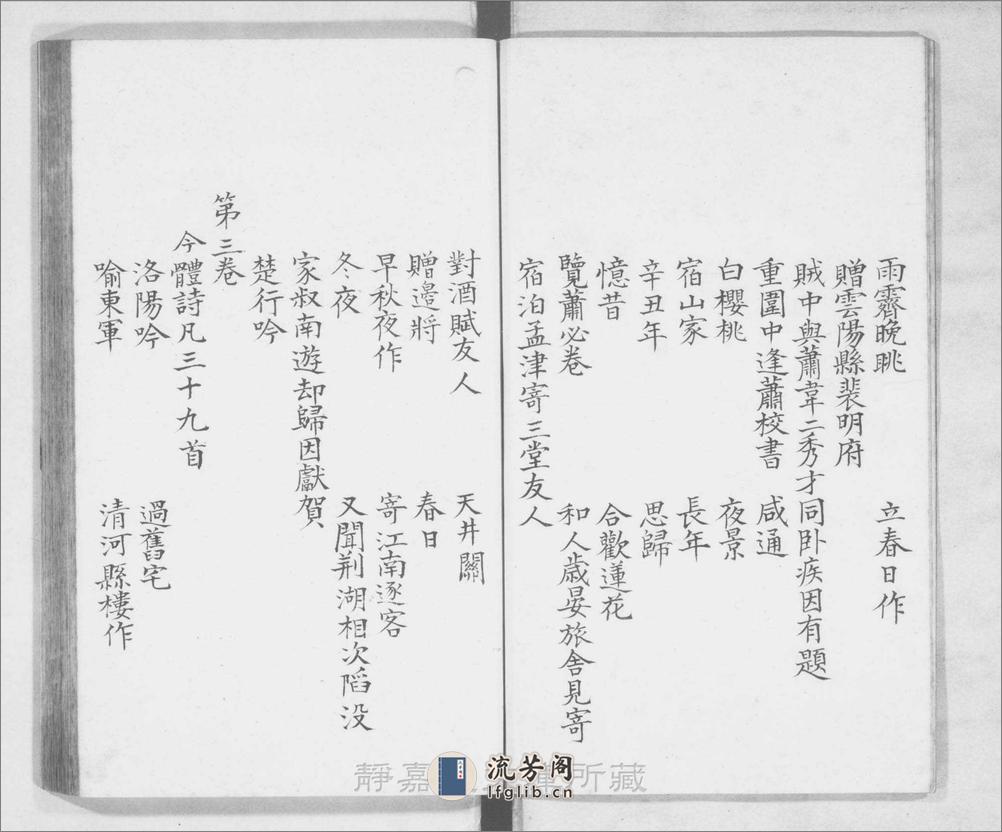 雨霽晚眺　立春日作
贈雲陽縣裴明府
賊中與蕭韋二秀才同卧疾因有題
重圍中逢蕭校書　咸通
白櫻桃　夜景
宿山家　長年
辛丑年　思歸
憶昔　合歡蓮花
覽蕭必卷　和人歲晏旅舍見寄
宿泊孟津寄三堂友人
對酒賦友人　天井關
贈邊將　春日
早秋夜作　寄江南逐客
冬夜　又聞荆湖相次陷没
家叔南遊却歸因獻賀
楚行吟
第三卷
今體詩凡三十九首
洛陽吟　過舊宅
喻東軍　清河縣樓作
靜嘉
所藏
流芳阁
lfglib.cn